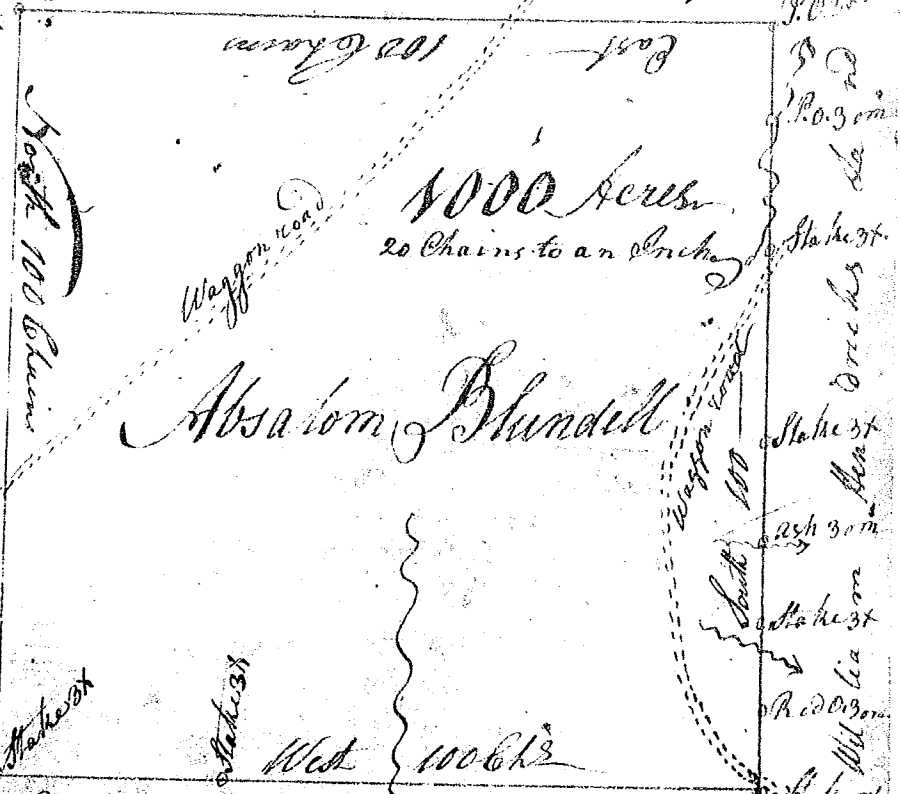 East 100 Chains
North 100 Chains
Waggon road
1000 Acres
20 Chains to an Inch
Absalom Blundell
Waggon road
South 100
West 100 Chs
Stake 3x
Stake 3x
P.O. 3 om
Stake 3x
Stake 3x
ash 3 om
Stake 3x
Red O. 3 om
William Hendricks Land